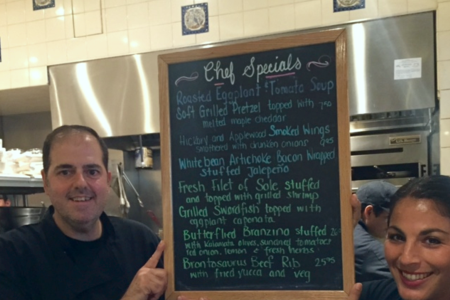 Chef Specials
Roasted Eggplant & Tomato Soup
Soft Grilled Pretzel topped with
melted maple cheddar
Hickory and Applewood Smoked Wings
smothered with drunken onions
White bean Artichoke Bacon Wrapped
stuffed Jalapeño
Fresh Filet of Sole stuffed
and topped with grilled shrimp
Grilled Swordfish topped with
eggplant caponata
Butterflied Branzino stuffed
with kalamata olives, sundried tomatoes
red onion, lemon & fresh herbs
Brontosaurus Beef Rib 25.95
with fried yucca and veg